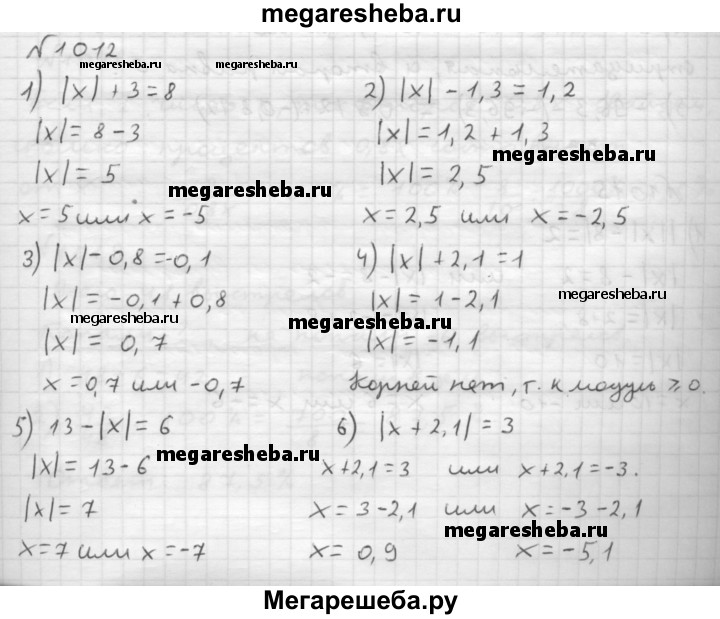 megaresheba.ru
№1012
megaresheba.ru megaresheba.ru
1) |x| + 3 = 8
|x| = 8 - 3
|x| = 5
megaresheba.ru
x = 5 или x = -5
2) |x| - 1,3 = 1,2
|x| = 1,2 + 1,3
megaresheba.ru
|x| = 2,5
x = 2,5 или x = -2,5
3) |x| - 0,8 = -0,1
|x| = -0,1 + 0,8
megaresheba.ru
|x| = 0,7
x = 0,7 или -0,7
4) |x| + 2,1 = 1
|x| = 1 - 2,1
megaresheba.ru
megaresheba.ru
|x| = -1,1
Корней нет, т. к. модуль ⩾ 0.
5) 13 - |x| = 6
megaresheba.ru
|x| = 13 - 6
|x| = 7
x = 7 или x = -7
6) |x + 2,1| = 3
x + 2,1 = 3 или x + 2,1 = -3.
x = 3 - 2,1 или x = -3 - 2,1
megaresheba.ru
x = 0,9 x = -5,1
Мегарешеба.ру